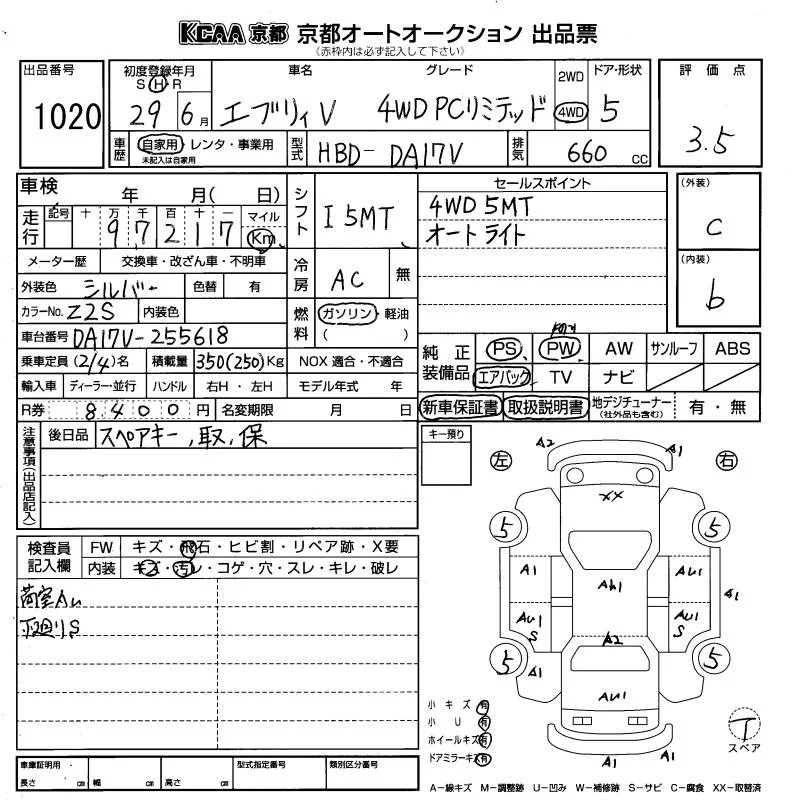 KCAA 京都 京都オートオークション 出品票
(赤枠内は必ず記入して下さい)
出品番号 初度登録年月 車名 グレード 2WD ドア・形状 評価点
S H R
1020 29 6月 エブリィV 4WD PCリミテッド 4WD 5 3.5
車歴 自家用・レンタ・事業用 型式 HBD-DA17V 排気 660 cc
未記入は自家用
車検 年 月( 日) シフト I 5MT セールスポイント (外装)
走行 記号 十 万 千 百 十 一 マイル 4WD 5MT c
9 7 2 1 7 Km オートライト
メーター歴 交換車・改ざん車・不明車 冷房 AC 無 (内装)
外装色 シルバー 色替 有 b
カラーNo. Z2S 内装色 燃料 ガソリン・軽油
車台番号 DA17V-255618 ( )
乗車定員 (2/4)名 積載量 350(250)Kg NOX 適合・不適合 純正装備品 PS PW AW サンルーフ ABS
輸入車 ディーラー・並行 ハンドル 右H・左H モデル年式 年 エアバック TV ナビ
R券 8400円 名変期限 月 日 新車保証書 取扱説明書 地デジチューナー 有・無
(社外品も含む)
注意事項(出品店記入) 後日品 スペアキー,取,保 キー預り
A2 A1
左 右
XX
5 5
検査員記入欄 FW キズ・飛石・ヒビ割・リペア跡・X要
内装 キズ・汚レ・コゲ・穴・スレ・キレ・破レ
A1 AU1
荷室AU A1
下廻りS AU1 AU1
S S
A2
5 5
A1
AU1
小キズ 有
小U 有
ホイールキズ 有
ドアミラーキズ 有
A1 A1
T
スペア
車庫証明用 型式指定番号 類別区分番号
長さ cm 幅 cm 高さ cm
A-線キズ M-調整跡 U-凹み W-補修跡 S-サビ C-腐食 XX-取替済